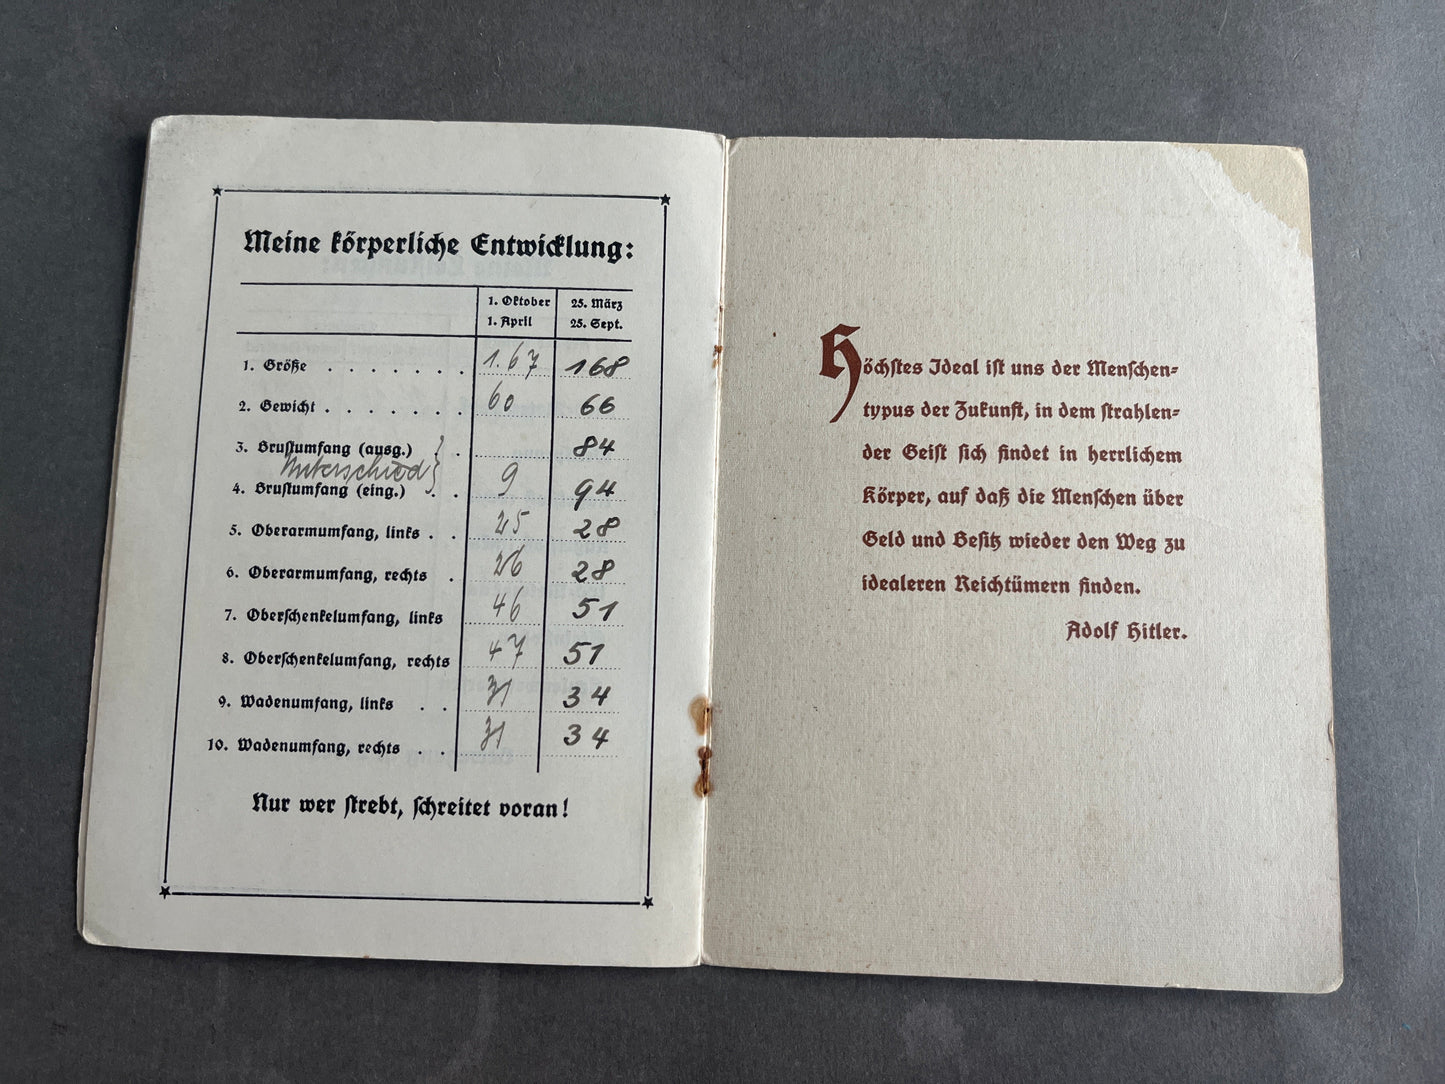 Meine körperliche Entwicklung:
1. Oktober 25. März
1. April 25. Sept.
1. Größe . . . . . . . 1.67 168
2. Gewicht . . . . . . . 60 66
3. Brustumfang (ausg.) } . 84
Unterschied
4. Brustumfang (eing.) } . . 9 94
5. Oberarmumfang, links . . 25 28
6. Oberarmumfang, rechts . 26 28
7. Oberschenkelumfang, links 46 51
8. Oberschenkelumfang, rechts 47 51
9. Wadenumfang, links . . 31 34
10. Wadenumfang, rechts . . 31 34
Nur wer strebt, schreitet voran!
Höchstes Ideal ist uns der Menschen-
typus der Zukunft, in dem strahlen-
der Geist sich findet in herrlichem
Körper, auf daß die Menschen über
Geld und Besitz wieder den Weg zu
idealeren Reichtümern finden.
Adolf Hitler.